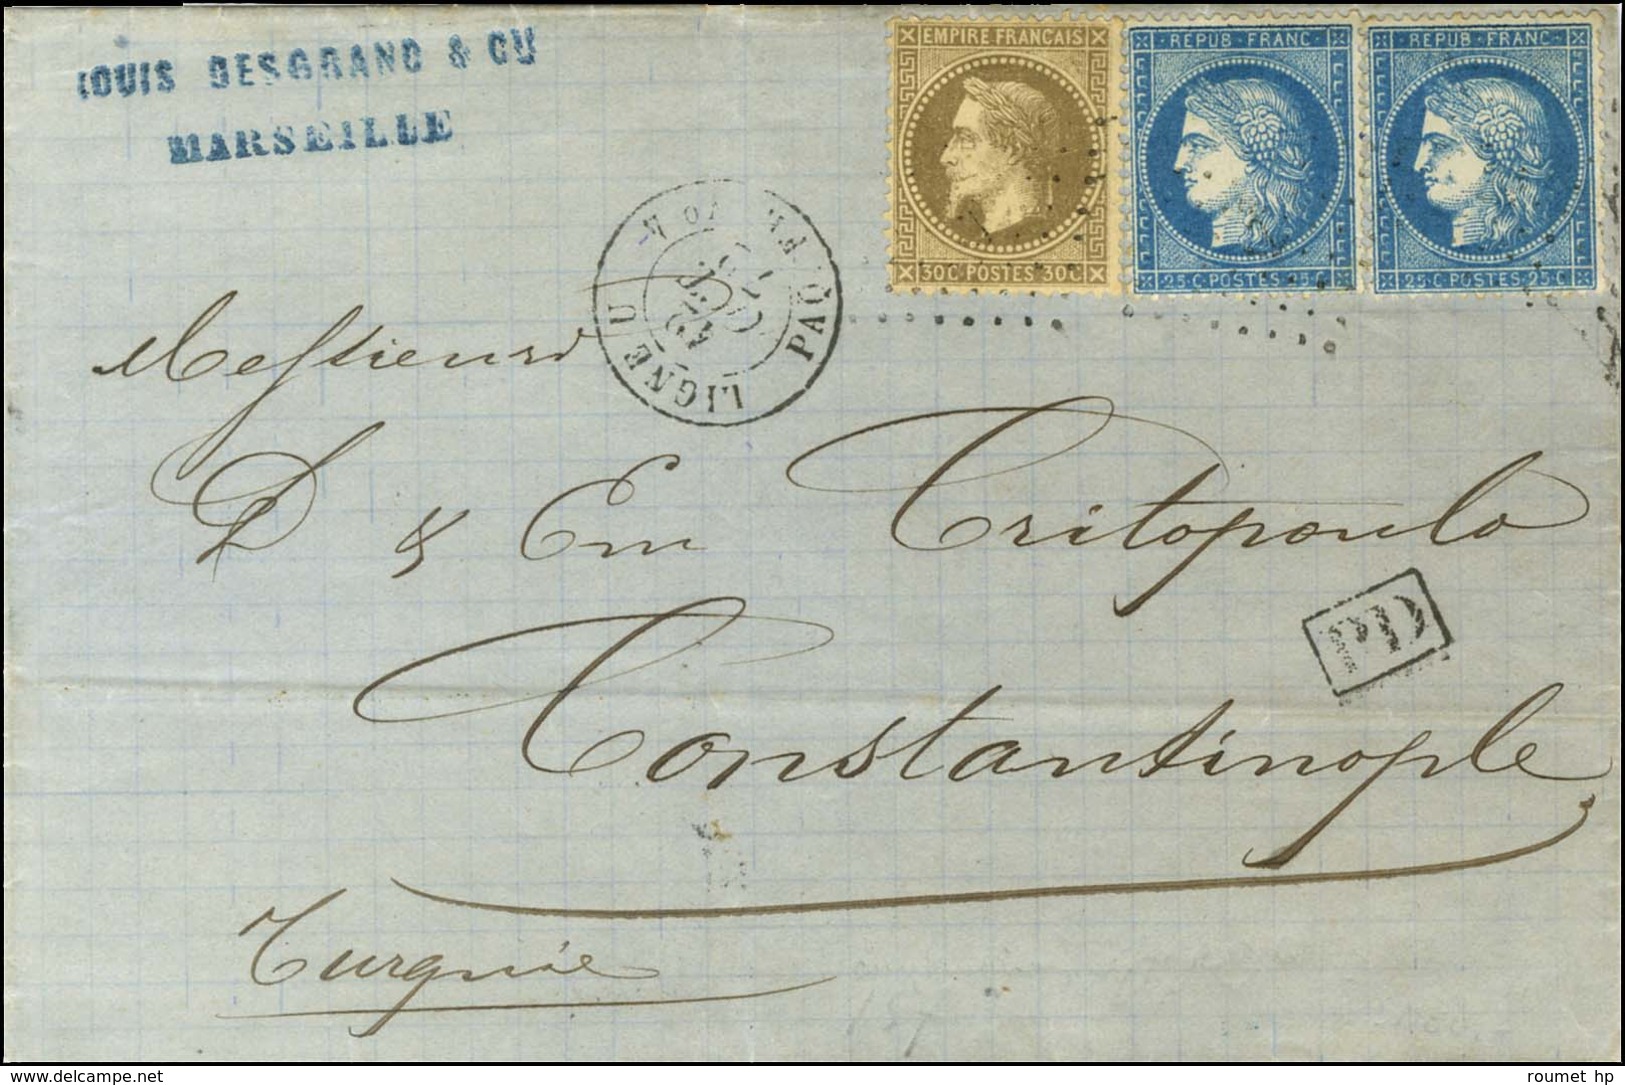 LOUIS DESGRAND & CIE
MARSEILLE
EMPIRE FRANÇAIS
30C POSTES 30C
REPUB FRANC
25·C POSTES 25 C
REPUB FRANC
25·C POSTES 25 C
LIGNE U PAQ. FR. No 4
OCT.
Messieurs
D & Em Critopoulo
PD
Constantinople
Turquie
www.delcampe.net
roumet hp